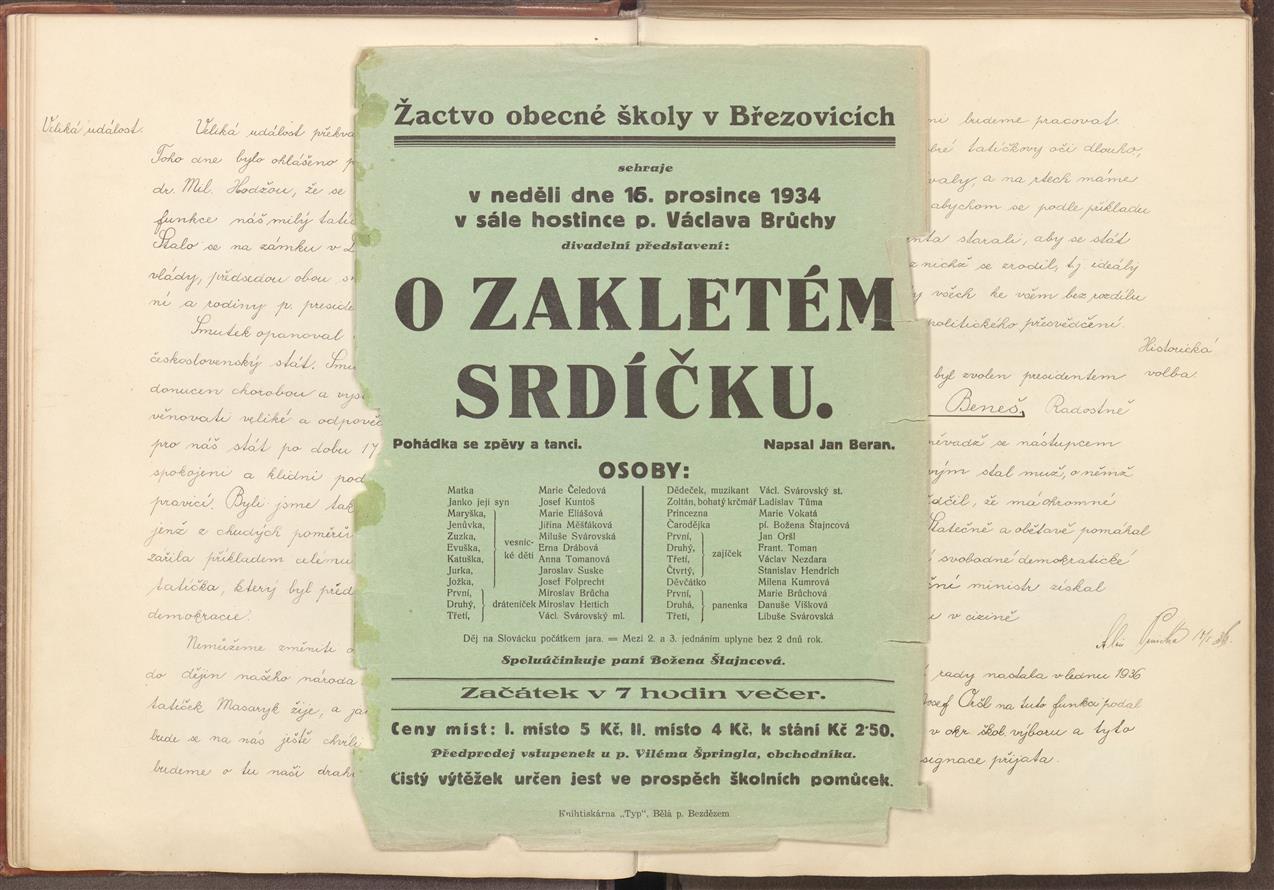 Veliká událost.
Veliká událost překva
Toho dne bylo ohlášeno p
dr. Mil. Hodžou, že se
funkce náš milý tatíč
Stalo se na zámku v L
vlády, předsedou obou s
ní a rodiny p. preside
Smutek opanoval
československý stát. Smu
donucen chorobou a vys
věnovati veliké a odpově
pro náš stát po dobu 17
spokojeni a klidni pod
pravicí. Byli jsme tak
jenž z chudých poměrů
zářila příkladem celému
tatíčka, který byl před
demokracie.
Nemůžeme změniti
do dějin našeho národa
tatíček Masaryk žije, a ja
bude se na nás ještě chvíli
budeme o tu naši drah
Žactvo obecné školy v Březovicích
sehraje
v neděli dne 16. prosince 1934
v sále hostince p. Václava Brůchy
divadelní představení:
O ZAKLETÉM
SRDÍČKU.
Pohádka se zpěvy a tanci. Napsal Jan Beran.
OSOBY:
Matka Marie Čeledová
Janko její syn Josef Kuntoš
Maryška, Marie Eliášová
Jenůvka, Jiřina Měšťáková
Zuzka, Miluše Svárovská
Evuška, Erna Drábová
Katuška, Anna Tomanová
Jurka, Jaroslav Suske
Jožka, Josef Folprecht
vesnic-
ké děti
První, Miroslav Brůcha
Druhý, dráteníček Miroslav Hettich
Třetí, Václ. Svárovský ml.
Dědeček, muzikant Václ. Svárovský st.
Zoltán, bohatý krčmář Ladislav Tůma
Princezna Marie Vokatá
Čarodějka pí. Božena Štajncová
První, Jan Oršl
Druhý, Frant. Toman
Třetí, Václav Nezdara
Čtvrtý, Stanislav Hendrich
zajíček
Děvčátko Milena Kumrová
První, Marie Brůchová
Druhá, panenka Danuše Víšková
Třetí, Libuše Svárovská
Děj na Slovácku počátkem jara. = Mezi 2. a 3. jednáním uplyne bez 2 dnů rok.
Spoluúčinkuje paní Božena Štajncová.
Začátek v 7 hodin večer.
Ceny míst: I. místo 5 Kč, II. místo 4 Kč, k stání Kč 2·50.
Předprodej vstupenek u p. Viléma Špringla, obchodníka.
Čistý výtěžek určen jest ve prospěch školních pomůcek.
Knihtiskárna „Typ", Bělá p. Bezdězem
ni budeme pracovat.
bré tatíčkovy oči dlouho,
valy, a na rtech máme
abychom se podle příkladu
nta starali, aby se stát
z nichž se zrodil, t.j. ideály
y všech ke všem bez rozdílu
politického přesvědčení.
Historická
volba.
byl zvolen presidentem
Beneš. Radostně
něvadž se nástupcem
vým stal muž, o němž
dčil, že má ohromné
Statečně a obětavě pomáhal
svobodné demokratické
ční ministr získal
i v cizině
rady nastala v lednu 1936
osef Oršl na tuto funkci podal
v okr. škol. výboru a tyto
signace přijata.